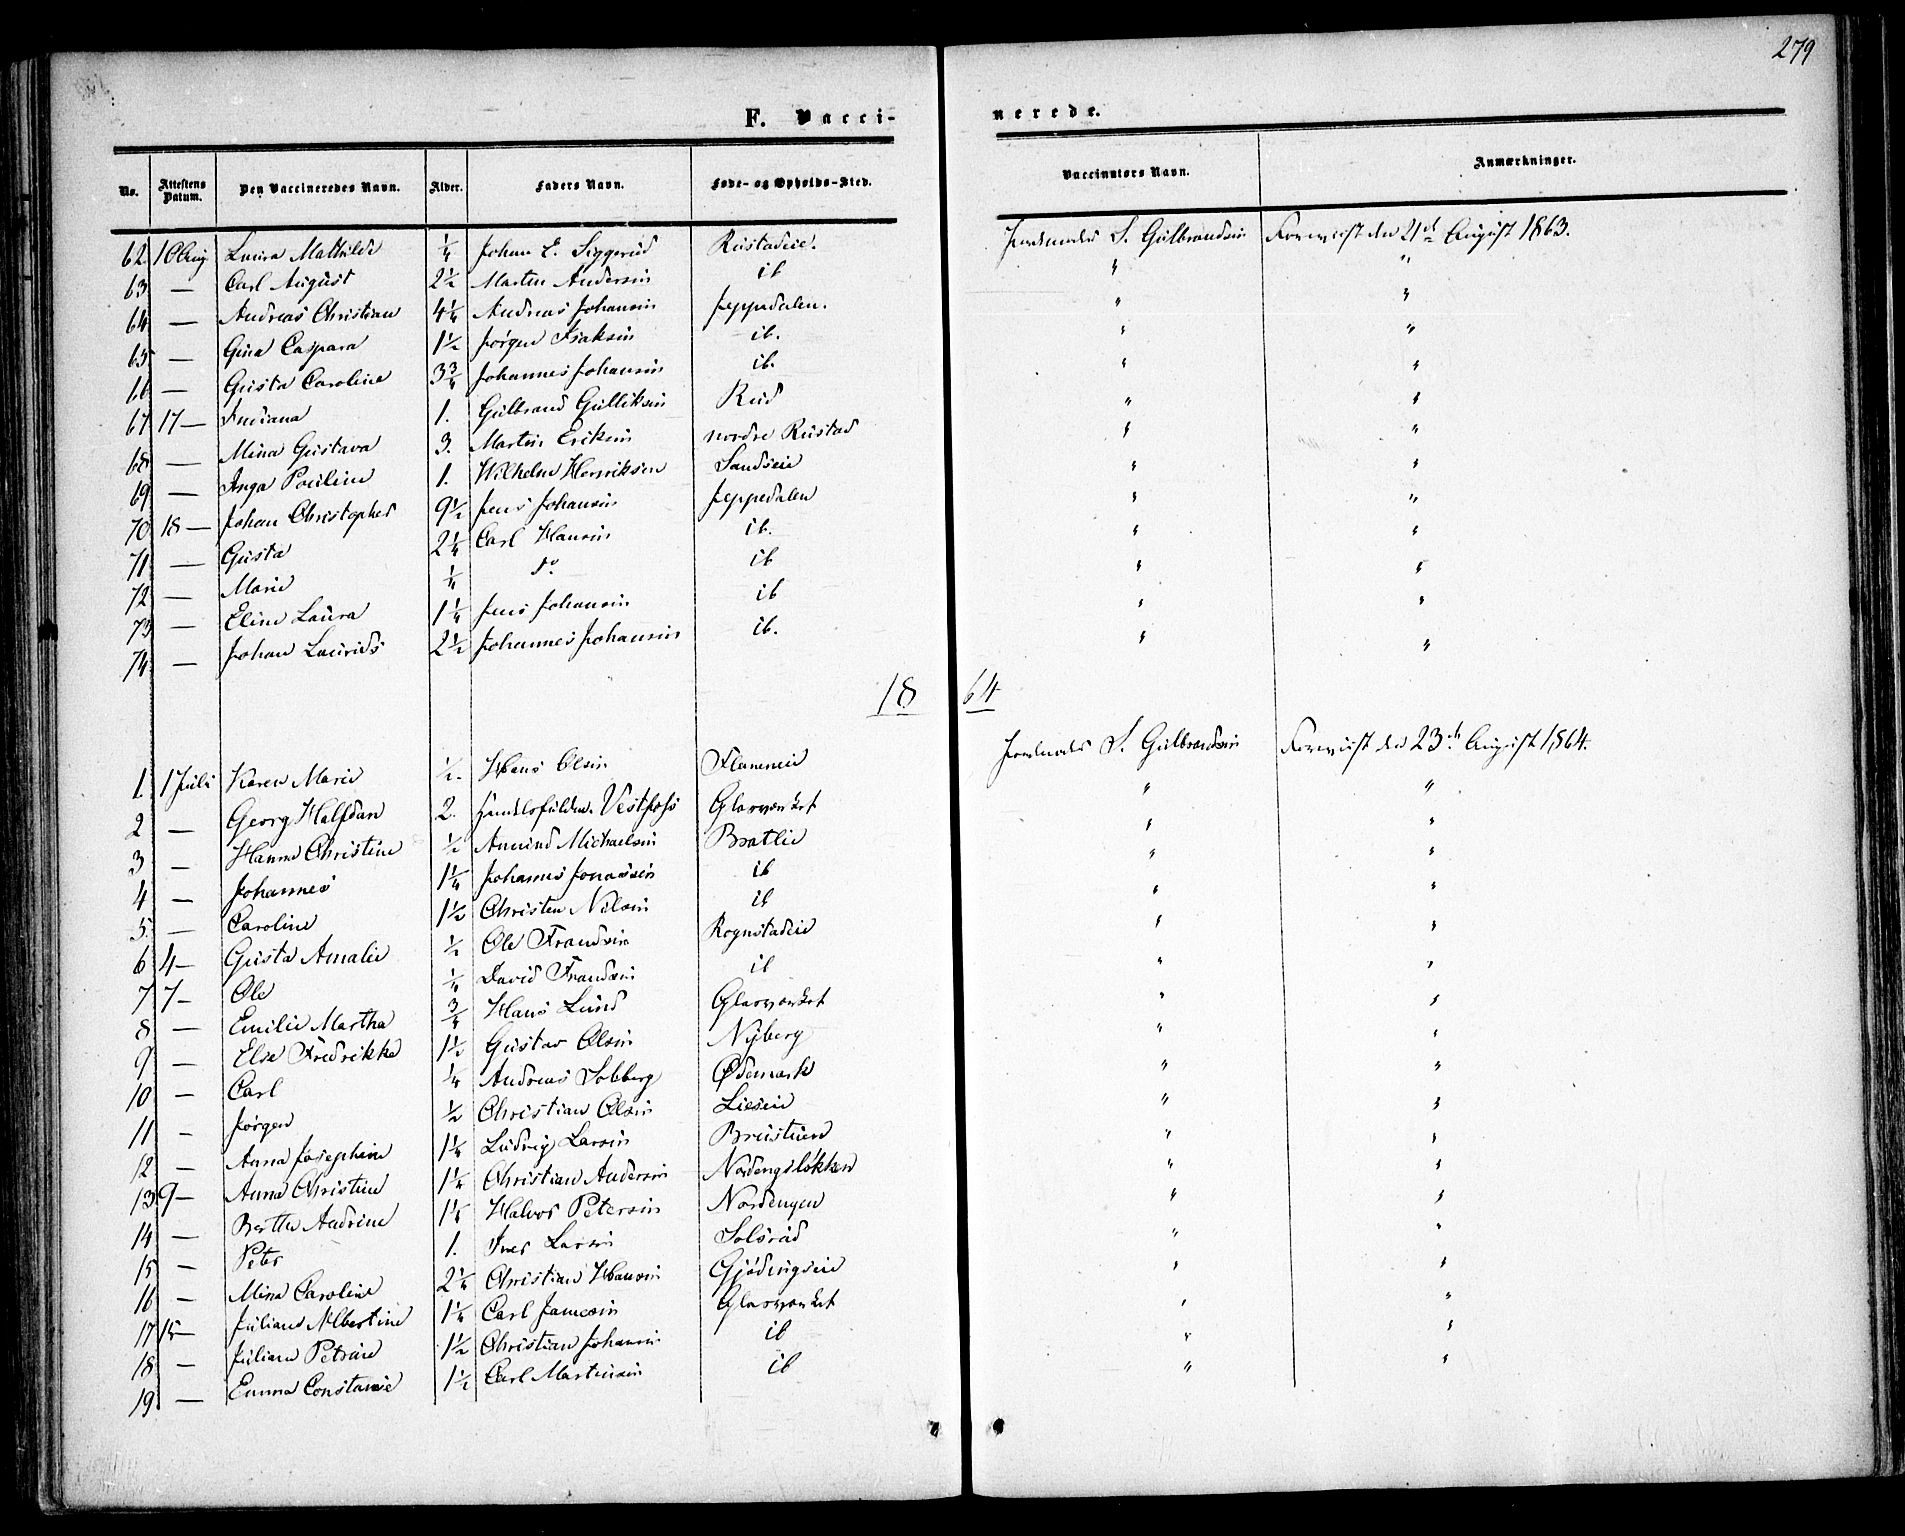 279
F. Vaccinerede.
No. Attestens Datum. Den Vaccineredes Navn. Alder. Faders Navn. Føde- og Opholds-Sted. Vaccinators Navn. Anmærkninger.
62. 10 Aug Laura Mathilde ¼ Johan E. Siggerud Rustadeie. Jordmoder S. Gulbrandsen Foreviist den 21de August 1863.
63 — Carl August 2½ Martin Andersen ib " "
64 — Andreas Christian 4¼ Andreas Johansen Jeppedalen. " "
65 — Gina Caspara 1½ Jørgen Isaksen ib. " "
66 — Gusta Caroline 3¾ Johannes Johansen ib. " "
67 17 — 1. Gulbrand Gulliksen Rud " "
68 — Mina Gustava 3. Martin Eriksen nordre Rustad " "
69 — Inga Pauline 1. Wilhelm Henriksen Sandseie " "
70 18 — Johan Christopher 9½ Jens Johansen Jeppedalen " "
71 — Gusta 2¼ Carl Hansen ib. " "
72 — Marie ¼ do ib " "
73 — Eline Laura 1¼ Jens Johansen ib " "
74 — Johan Laurids 2½ Johannes Johansen ib. " "
1864
1. 1 Juli Karen Marie ½. Hans Olsen Flameneie Jordmoder S. Gulbrandsen Foreviist den 23de August 1864.
2 — Georg Halfdan 2. Handelsfuldm. Vestphs Glasværket " "
3 — Hanna Christine ½ Amund Michaelsen Bratlie " "
4 — Johannes 1¼ Johanes Jonassen ib " "
5. — Caroline 1½ Christen Nilsen ib " "
6 4 — Gusta Amalie ½ Ole Frandsen Rognstadeie " "
7 7 — Ole ¼ David Frandsen ib " "
8 — Emilie Martha ¾ Hans Lund Glasværket " "
9 — Else Fredrikke 1½ Gustav Olsen Nyberg " "
10 — Carl ¼ Andreas Solberg Ødemark " "
11 — Jørgen ½ Christian Olsen Lieseie " "
12 — Anna Josephine 1¼ Ludvig Larsen Brustuen " "
13 9 — Anna Christine 1¼ Christian Andersen Nordengsløkken " "
14 — Berthe Andrine 1¼ Halvor Petersen Nordengen " "
15 — Peter 1. Iver Larsen Solsrud " "
16 — Mina Caroline 2¼ Christian Hansen Gjødingseie " "
17 15 — Juliane Albertine 1¼ Carl Jamesen Glasværket " "
18 — Juliane Petrine 1½ Christian Johansen ib " "
19 — Emma Constanse 1½ Carl Martinsen ib " "